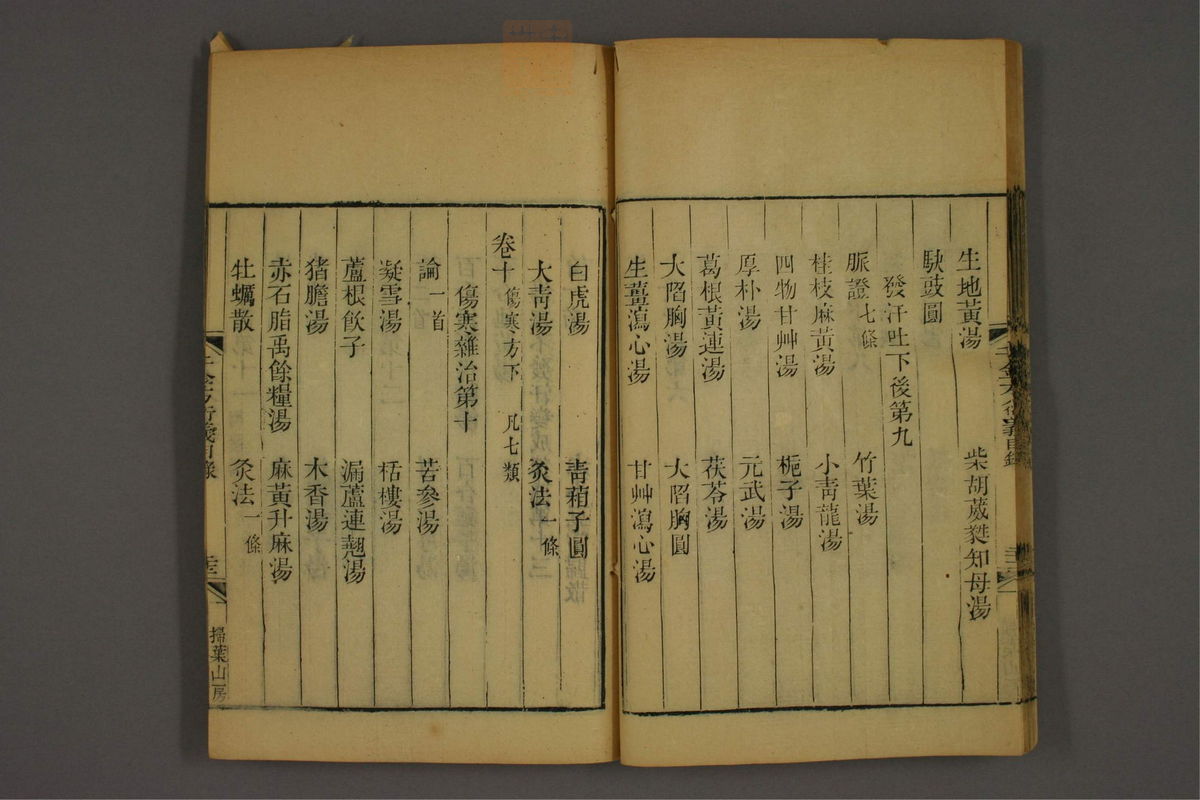 生地黃湯　柴胡葳蕤知母湯
䭾豉圓
發汗吐下後第九
脈證七條　竹葉湯
桂枝麻黃湯　小靑龍湯
四物甘艸湯　梔子湯
厚朴湯　元武湯
葛根黃連湯　茯苓湯
大陷胸湯　大陷胸圓
生薑瀉心湯　甘艸瀉心湯
白虎湯　靑葙子圓
大靑湯　灸法一條
卷十傷寒方下　凡七類
傷寒雜治第十
論一首　苦參湯
凝雪湯　栝樓湯
蘆根飮子　漏蘆連翹湯
猪膽湯　木香湯
赤石脂禹餘糧湯　麻黃升麻湯
牡蠣散　灸法一條
千金方衍義目錄
掃葉山房